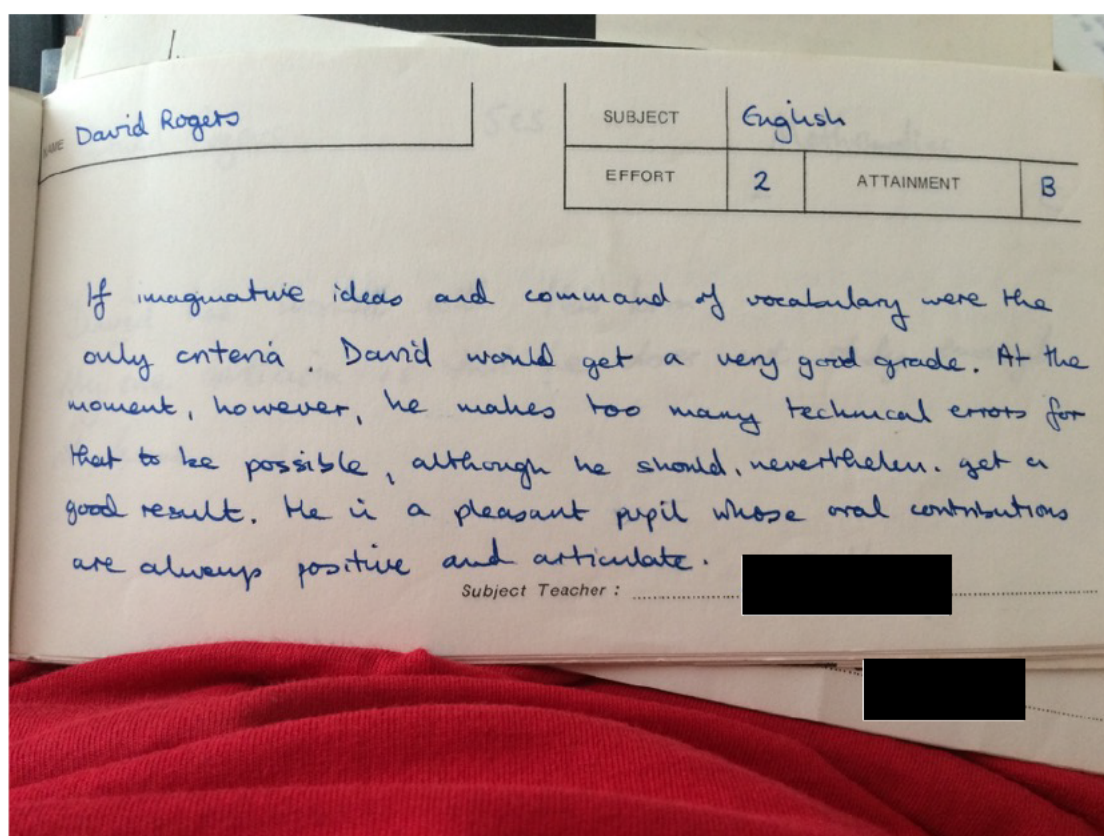 NAME David Rogers
SUBJECT English
EFFORT 2 ATTAINMENT B
If imaginative ideas and command of vocabulary were the
only criteria. David would get a very good grade. At the
moment, however, he makes too many technical errors for
that to be possible, although he should, nevertheless. get a
good result. He is a pleasant pupil whose oral contributions
are always positive and articulate.
Subject Teacher :